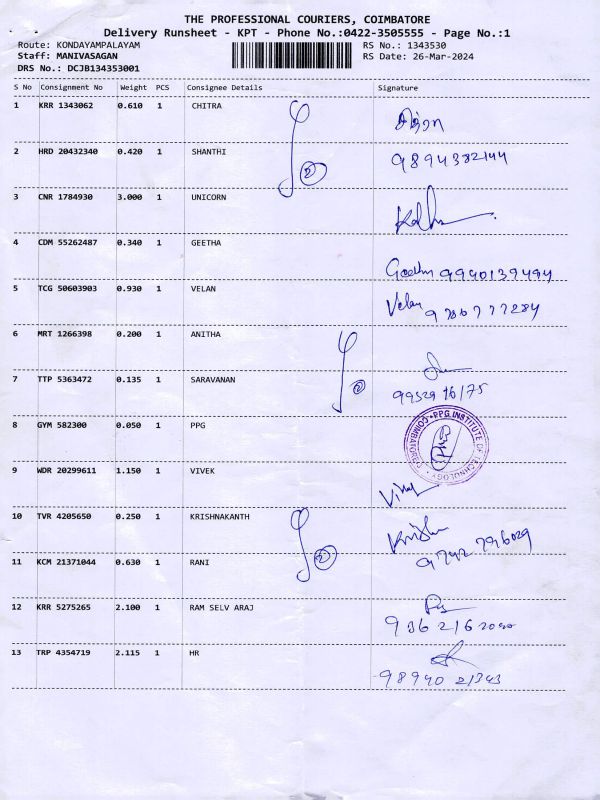 THE PROFESSIONAL COURIERS, COIMBATORE
Delivery Runsheet - KPT - Phone No.:0422-3505555 - Page No.:1
Route: KONDAYAMPALAYAM RS No.: 1343530
Staff: MANIVASAGAN RS Date: 26-Mar-2024
DRS No.: DCJB134353001
S No Consignment No Weight PCS Consignee Details Signature
1 KRR 1343062 0.610 1 CHITRA
சித்ரா
2 HRD 20432340 0.420 1 SHANTHI
9894382144
3 CNR 1784930 3.000 1 UNICORN
4 CDM 55262487 0.340 1 GEETHA
Geetha 9940139494
5 TCG 50603903 0.930 1 VELAN
Velan 9786777284
6 MRT 1266398 0.200 1 ANITHA
7 TTP 5363472 0.135 1 SARAVANAN
8 GYM 582300 0.050 1 PPG
PPG INSTITUTE OF TECHNOLOGY
9 WDR 20299611 1.150 1 VIVEK
10 TVR 4205650 0.250 1 KRISHNAKANTH
11 KCM 21371044 0.630 1 RANI
9742 796029
12 KRR 5275265 2.100 1 RAM SELV ARAJ
13 TRP 4354719 2.115 1 HR
98940 21343